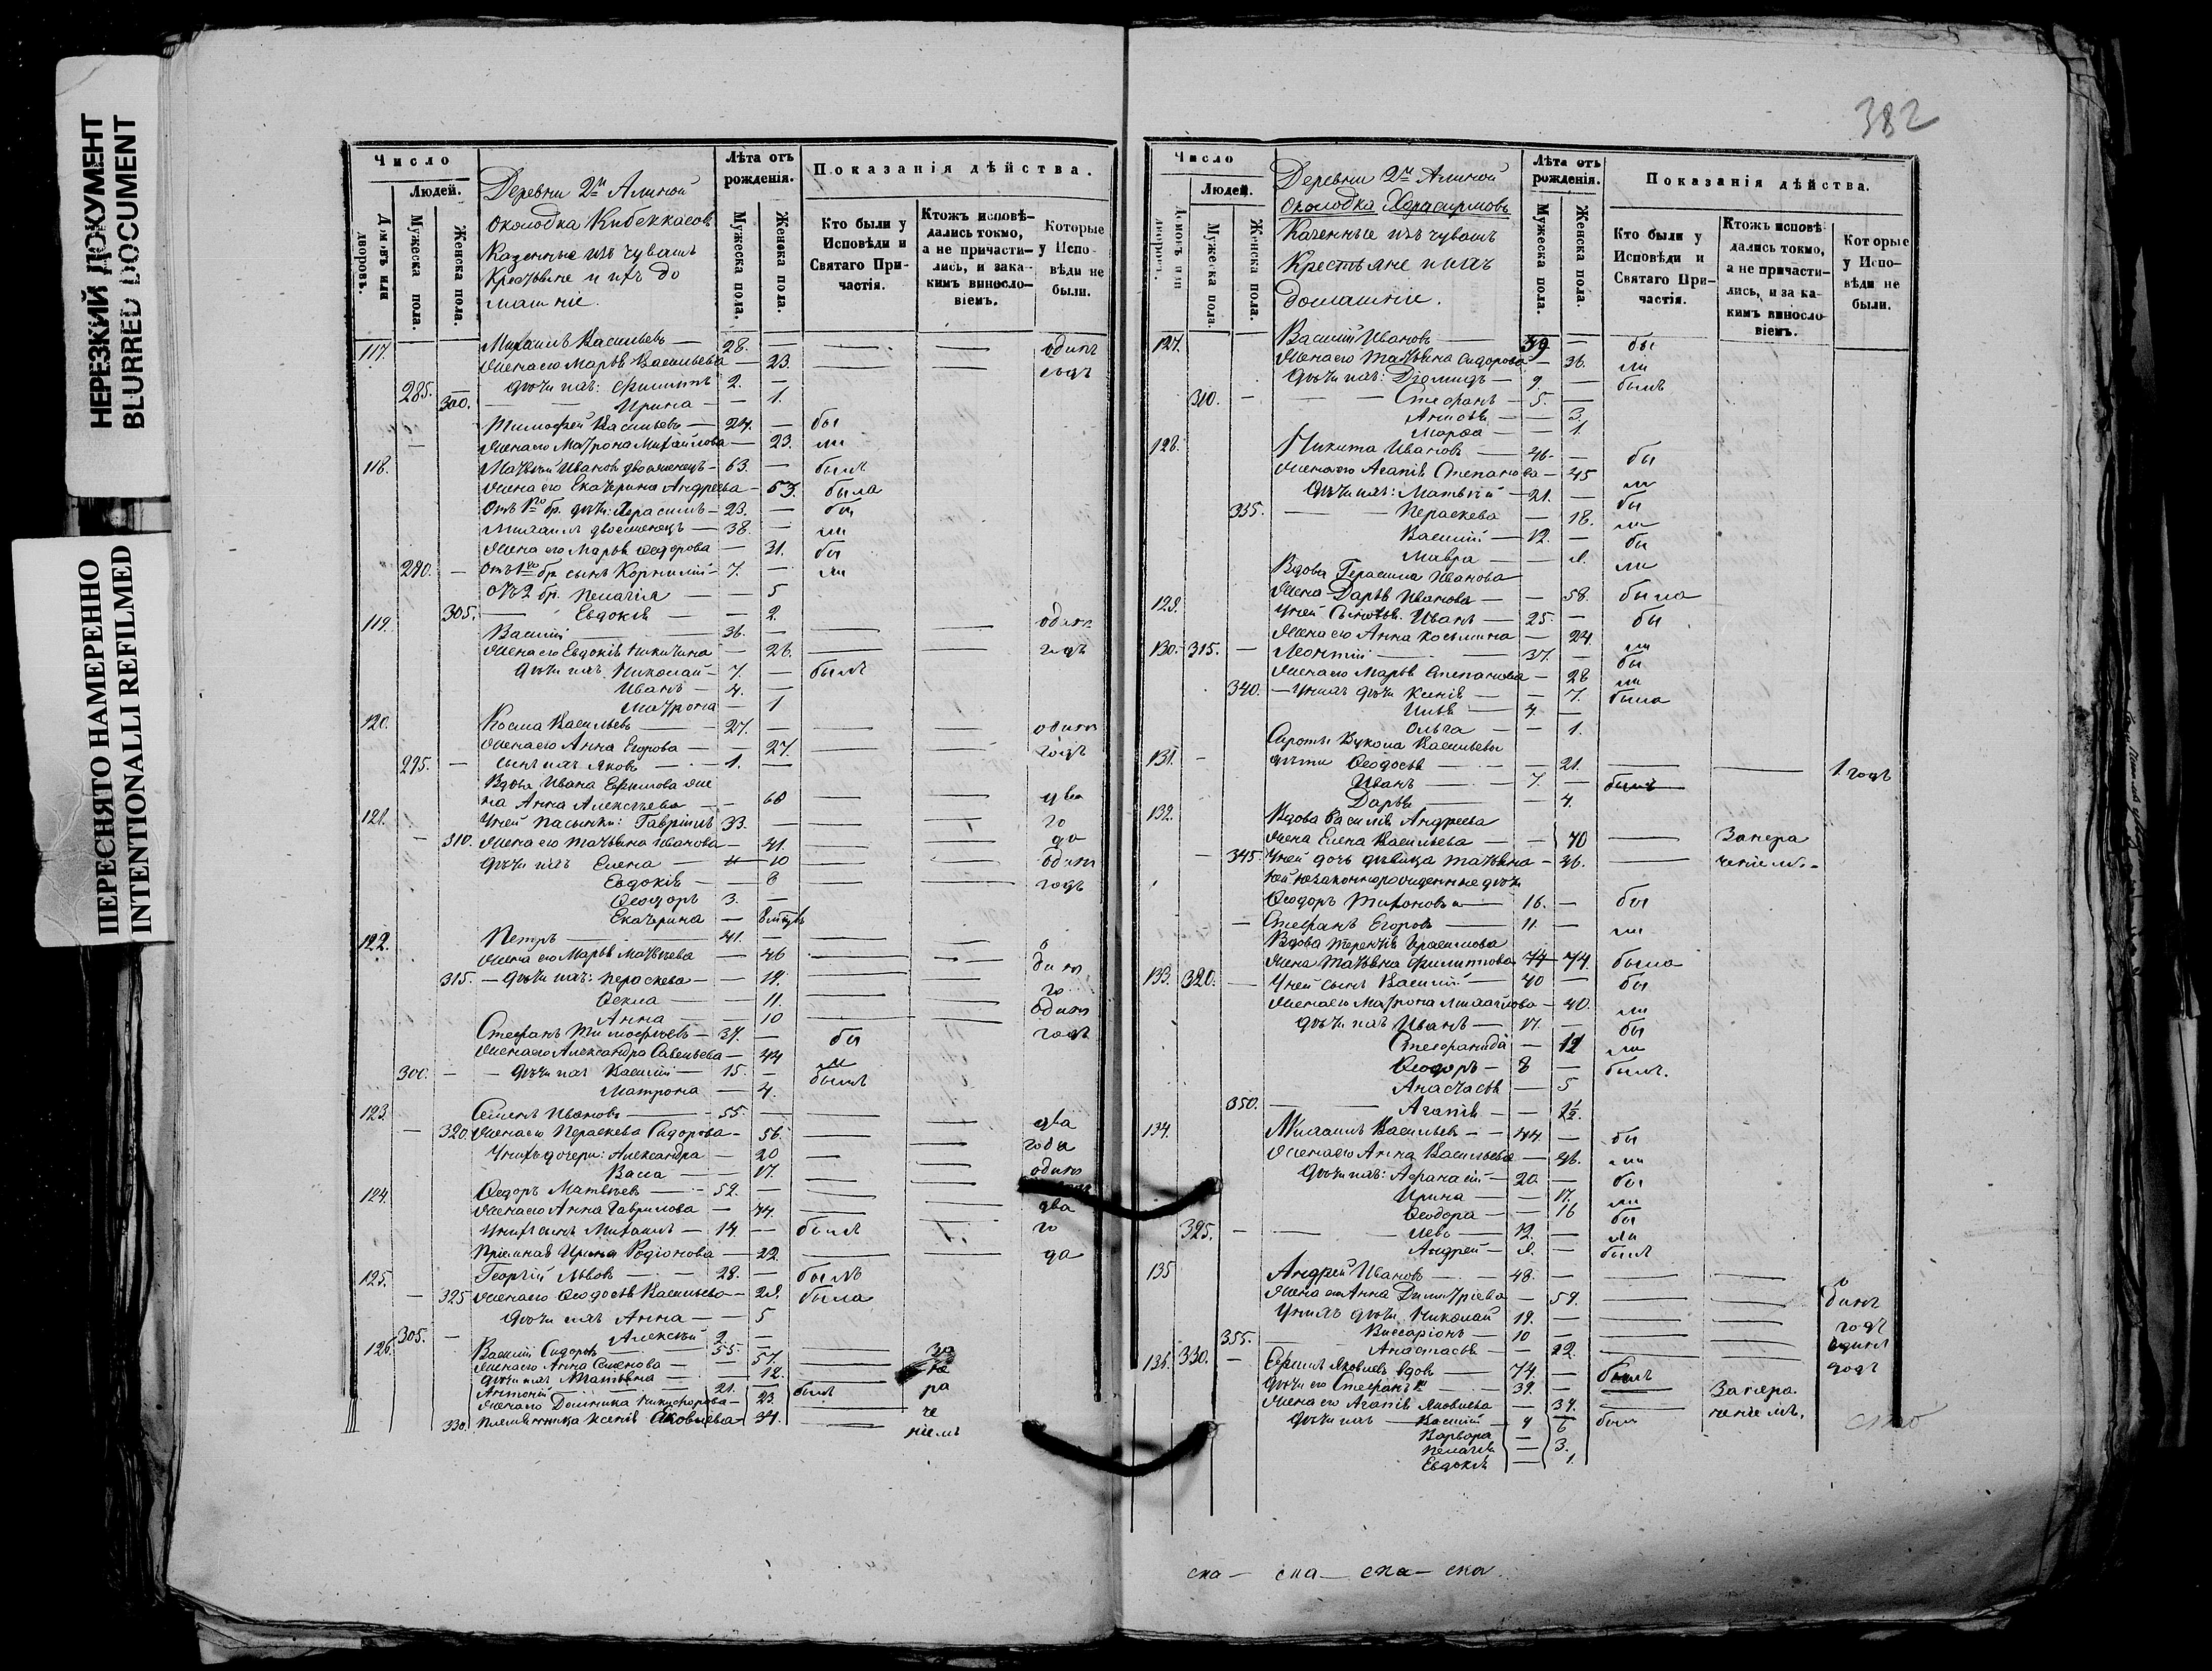 НЕРЕЗКИЙ ДОКУМЕНТ
BLURRED DOCUMENT
ПЕРЕСНЯТО НАМЕРЕННО
INTENTIONALLI REFILMED
Число
Людей.
Домовъ или дворовъ.
Мужеска пола.
Женска пола.
Деревни 2й Алиной
околодка Кибеккасов
Казенные изъ чувашъ
Крестьяне и ихъ до
машніе.
Лѣта отъ рожденія.
Мужеска пола.
Женска пола.
Показанія дѣйства.
Кто были у Исповѣди и Святаго Причастія.
Ктожъ исповѣдались токмо, а не причастились, и за какимъ винословіемъ.
Которые у Исповѣди не были.
117. Михаилъ Васильевъ — 28. — одинъ
Жена его Марѳа Васильева — 23. годъ
285. дѣти ихъ: Филиппъ 2. —
300. Ирина — 1.
Тимофей Васильевъ — 24. — бы
Жена его Матрона Михайлова — 23. ли
118. Матвѣй Иванов двоеженецъ — 63. — былъ
Жена его Екатерина Андреева — 53. была
Отъ 1го бр. дѣти: Герасимъ — 23. — бы
Михаилъ двоеженецъ — 38. — ли
Жена его Марѳа Федорова — 31. бы
290. — Отъ 1го бр сынъ Корнилій — 7. — ли
Отъ 2 бр. Пелагія — 5
305. Евдокія — 2.
119. Василій — 36. — одинъ
Жена его Евдокія Никитина — 26. годъ
дѣти ихъ. Николай — 7. — былъ
Иванъ — 4. —
Матрона — 1
120. Косма Васильевъ — 27. — одинъ
Жена его Анна Егорова — 27. годъ
295. — сынъ ихъ Яковъ — 1. —
Вдова Ивана Ефимова же
на Анна Алексѣева — 60 два
121. У ней пасынки: Гавріилъ 33. — го
310. Жена его Татьяна Иванова — 41. да
дѣти ихъ Елена — 10 одинъ
Евдокія — 8 годъ
Ѳеодоръ 3. —
Екатерина —
122. Петръ — 41. — о
Жена его Марѳа Матвѣева — 46 динъ
315. — дѣти ихъ: Параскева — 12. го
Ѳекла — 11. одинъ
Анна — 10 годъ
Стефанъ Тимофѣевъ — 37. — бы
Жена его Александра Савельева — 44 ли
300. — дѣти ихъ Василій — 15. — былъ
Матрона — 4.
123. Семенъ Ивановъ — 55. — два
320. Жена его Параскева Сидорова — 56. года
У нихъ дочери: Александра — 20 одинъ
Васа — 17.
124. Ѳедоръ Матвѣевъ — 52. — два
Жена его Анна Гаврилова — 44. го
У нихъ сынъ Михаилъ — 14. — былъ
Пріемная Ирина Родіонова — 22. да
125. Георгій Львовъ — 28. — былъ
325 Жена его Ѳеодосія Васильева — 28. была
дѣти ихъ Анна — 5
305. — Алексѣй 2. —
126. Василій Сидоровъ — 55. —
Жена его Анна Семенова — 57. не
дѣти ихъ Татьяна — 12. ра
Антоній — 21. — былъ
Жена его Домника Никифорова — 23. че
330. Племянница Ксенія Яковлева — 34. ніемъ
382
Число
Людей.
Домовъ или дворовъ.
Мужеска пола.
Женска пола.
Деревни 2й Алиной
околодка
Казенные изъ чувашъ
Крестьяне и ихъ
домашніе.
Лѣта отъ рожденія.
Мужеска пола.
Женска пола.
Показанія дѣйства.
Кто были у Исповѣди и Святаго Причастія.
Ктожъ исповѣдались токмо, а не причастились, и за какимъ винословіемъ.
Которые у Исповѣди не были.
127. Василій Ивановъ — бы
Жена его Татьяна Сидорова — 36. ли
дѣти ихъ: Діомидъ — 9. — былъ
310. — Стефанъ — 5. —
3.
Марѳа — 1.
128. Никита Ивановъ — 46. — бы
Жена его Агапія Степанова — 45 ли
дѣти ихъ: Матвѣй — 21. — бы
335. Параскева — 18. ли
Василій — 12. — бы
Мавра — ли
Вдова Герасима Иванова
Жена Дарья Иванова — 58. была
129. У ней сынъ Иванъ — 25. — бы
Жена его Анна Косьмина — 24. ли
130. 315. — Леонтій — 37. — бы
Жена его Марѳа Степанова — 28 ли
340. — У нихъ дѣти Ксенія — 7. была
Илья — 4. —
Ольга — 1.
Сироты Вукола Васильевы
131. — дѣти Ѳеодосья — 21. 1 годъ
Иванъ — 7. — былъ
Дарья — 4.
132. Вдова Василія Андреева
Жена Елена Васильева — 70 За нера
345. У ней дочь дѣвица Татьяна — 46. ченіемъ.
У ней незаконнорожденные дѣти
Ѳеодоръ Тихоновъ — 16. — бы
— Стефанъ Егоровъ — 11. — ли
Вдова Терентія Герасимова
Жена Татьяна Филиппова 74 74. была
133. 320. — У ней сынъ Василій — 40 — бы
Жена его Матрона Михайлова — 40. ли
дѣти ихъ Иванъ — 17. — бы
Стефанида — 12 ли
Ѳеодоръ — 8 — былъ.
Анастасія — 5
350. Агапія —
134. Михаилъ Васильевъ — 44 — бы
Жена его Анна Васильева — 46. ли
дѣти ихъ: Афанасій — 20 — бы
Ирина — 17. ли
Ѳеодора — 16 бы
325. — Левъ — 12. — ли
Андрей — былъ
135 Андрей Ивановъ — 48. — о
Жена его Анна Димитріева — 52. динъ
У нихъ дѣти Николай 19. — годъ
Виссаріонъ — 10 — одинъ
355. Анастасія — 12. годъ
136. 330. — Ефимъ Яковлевъ вдов — 74. — былъ
дѣти его Стефанъ — 39. — За нера
Жена его Агапія Яковлева — 37. ченіемъ.
дѣти ихъ — Василій — 9 — был
Варвара — 6
Пелагія — 3.
Евдокія — 1.
ска — ска — ска — ска.